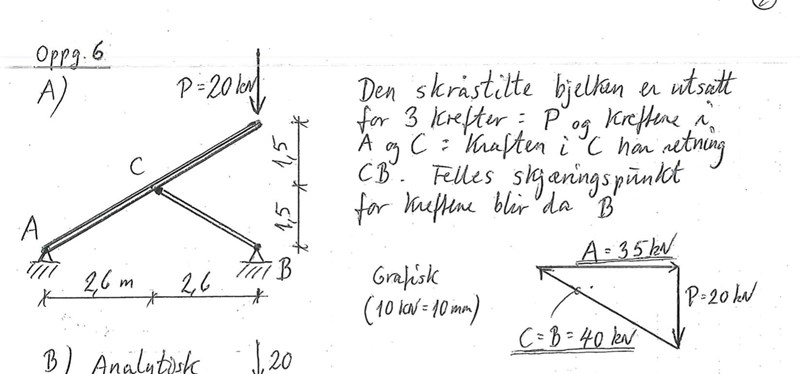 Oppg. 6
A)
P = 20 kN
C
1,5
1,5
A
B
2,6 m
2,6
Den skråstilte bjelken er utsatt
for 3 krefter : P og kreftene i
A og C : Kraften i C har retning
CB. Felles skjæringspunkt
for kreftene blir da B
Grafisk
(10 kN = 10 mm)
A = 35 kN
P = 20 kN
C = B = 40 kN
B) Analytisk
20